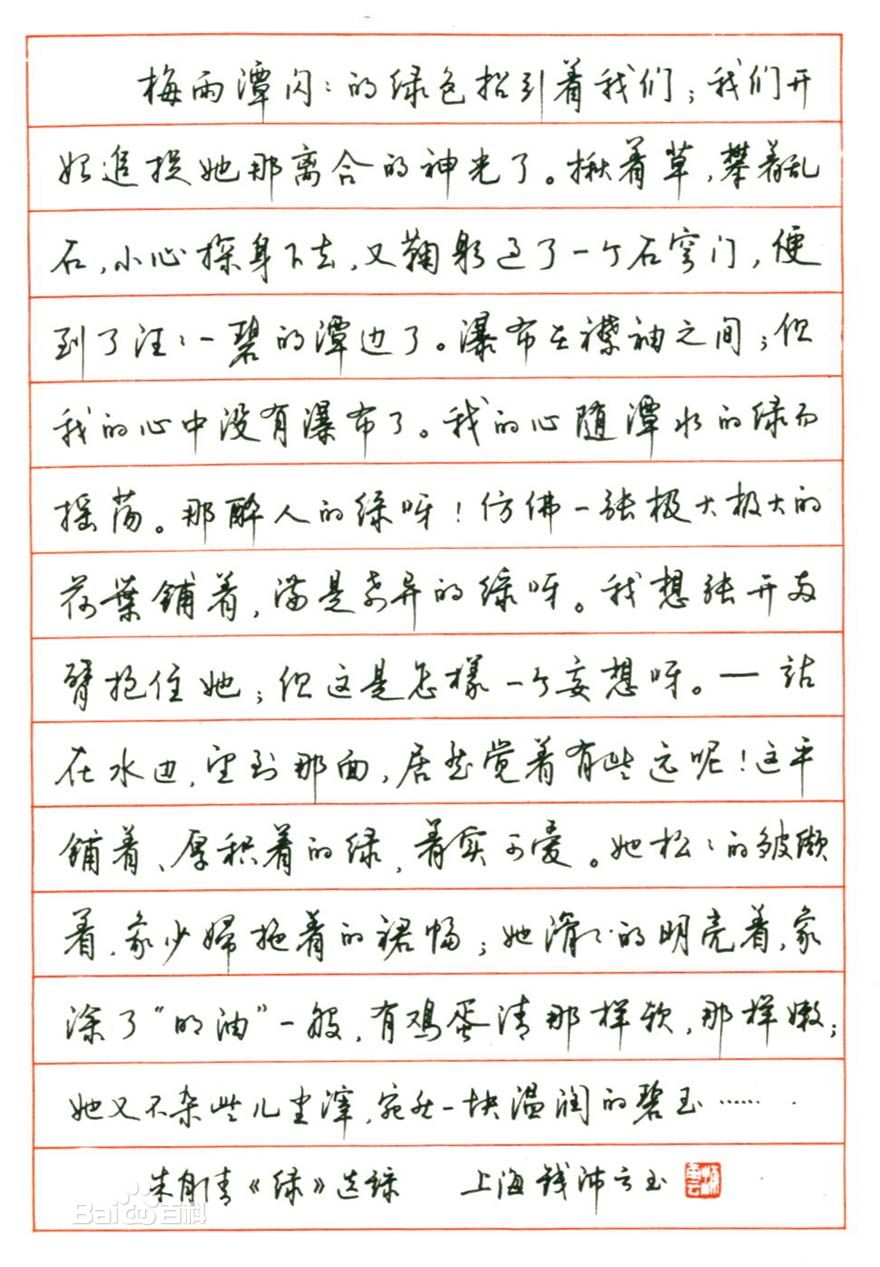 梅雨潭闪:的绿色招引着我们;我们开
始追捉她那离合的神光了。揪着草,攀着乱
石,小心探身下去,又鞠躬过了一个石穹门,便
到了汪:一碧的潭边了。瀑布在襟袖之间;但
我的心中没有瀑布了。我的心随潭水的绿而
摇荡。那醉人的绿呀!仿佛一张极大极大的
荷葉铺着,满是奇异的绿呀。我想张开两
臂抱住她;但这是怎樣一个妄想呀。— 站
在水边,望到那面,居然觉着有些远呢!这平
铺着、厚积着的绿,着实可爱。她松:的皱缬
着,象少婦拖着的裙幅;她滑:的明亮着,象
涂了“明油”一般,有鸡蛋清那样软,那样嫩;
她又不杂些儿尘滓,宛然一块温润的碧玉……
朱自清《绿》选录 上海钱沛云书
Baidu百科